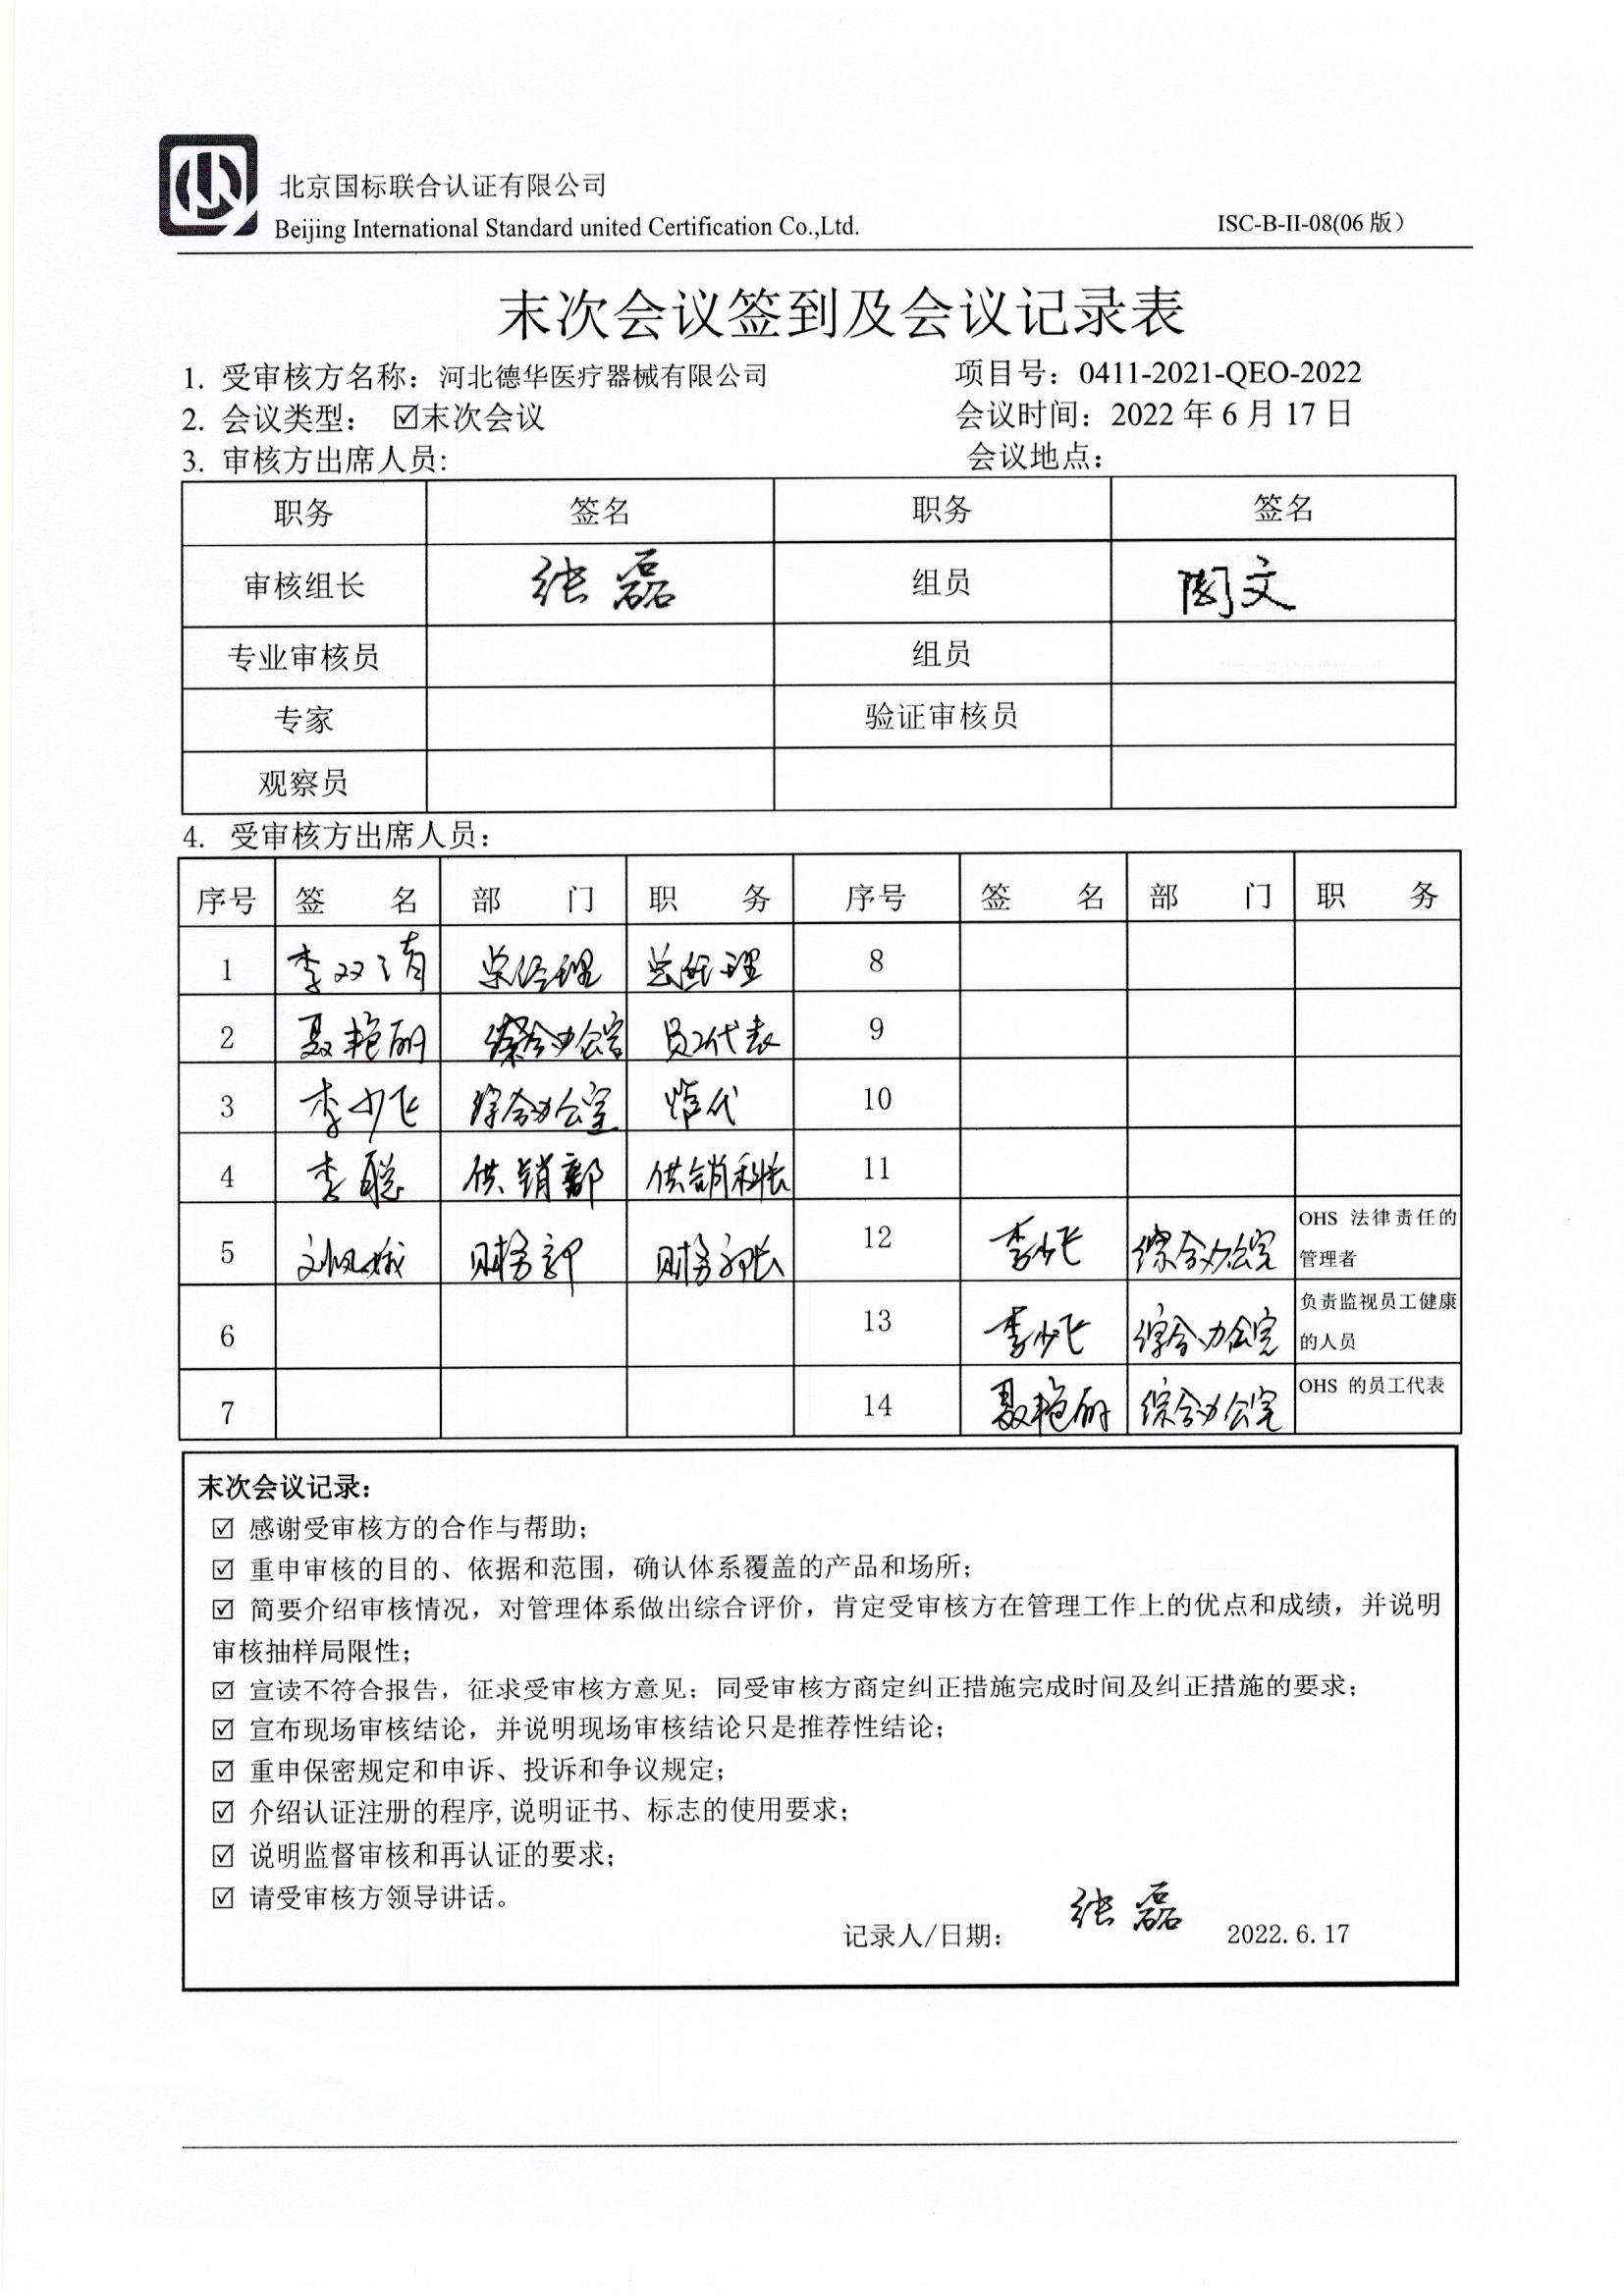 北京国标联合认证有限公司
Beijing International Standard united Certification Co.,Ltd.
ISC-B-II-08(06 版)
末次会议签到及会议记录表
1. 受审核方名称：河北德华医疗器械有限公司 项目号：0411-2021-QEO-2022
2. 会议类型： ☑末次会议 会议时间：2022 年 6 月 17 日
3. 审核方出席人员: 会议地点：
职务 签名 职务 签名
审核组长 张磊 组员 阎文
专业审核员 组员
专家 验证审核员
观察员
4. 受审核方出席人员：
序号 签 名 部 门 职 务 序号 签 名 部 门 职 务
1 李双清 总经理 总经理 8
2 聂艳丽 综合办公室 员工代表 9
3 李少飞 综合办公室 管代 10
4 李聪 供销部 供销科长 11
5 财务部 财务部长 12 李少飞 综合办公室 OHS 法律责任的
管理者
6 13 李少飞 综合办公室 负责监视员工健康
的人员
7 14 聂艳丽 综合办公室 OHS 的员工代表
末次会议记录：
☑ 感谢受审核方的合作与帮助；
☑ 重申审核的目的、依据和范围，确认体系覆盖的产品和场所；
☑ 简要介绍审核情况，对管理体系做出综合评价，肯定受审核方在管理工作上的优点和成绩，并说明
审核抽样局限性；
☑ 宣读不符合报告，征求受审核方意见；同受审核方商定纠正措施完成时间及纠正措施的要求；
☑ 宣布现场审核结论，并说明现场审核结论只是推荐性结论；
☑ 重申保密规定和申诉、投诉和争议规定；
☑ 介绍认证注册的程序,说明证书、标志的使用要求；
☑ 说明监督审核和再认证的要求；
☑ 请受审核方领导讲话。
记录人/日期： 张磊 2022.6.17